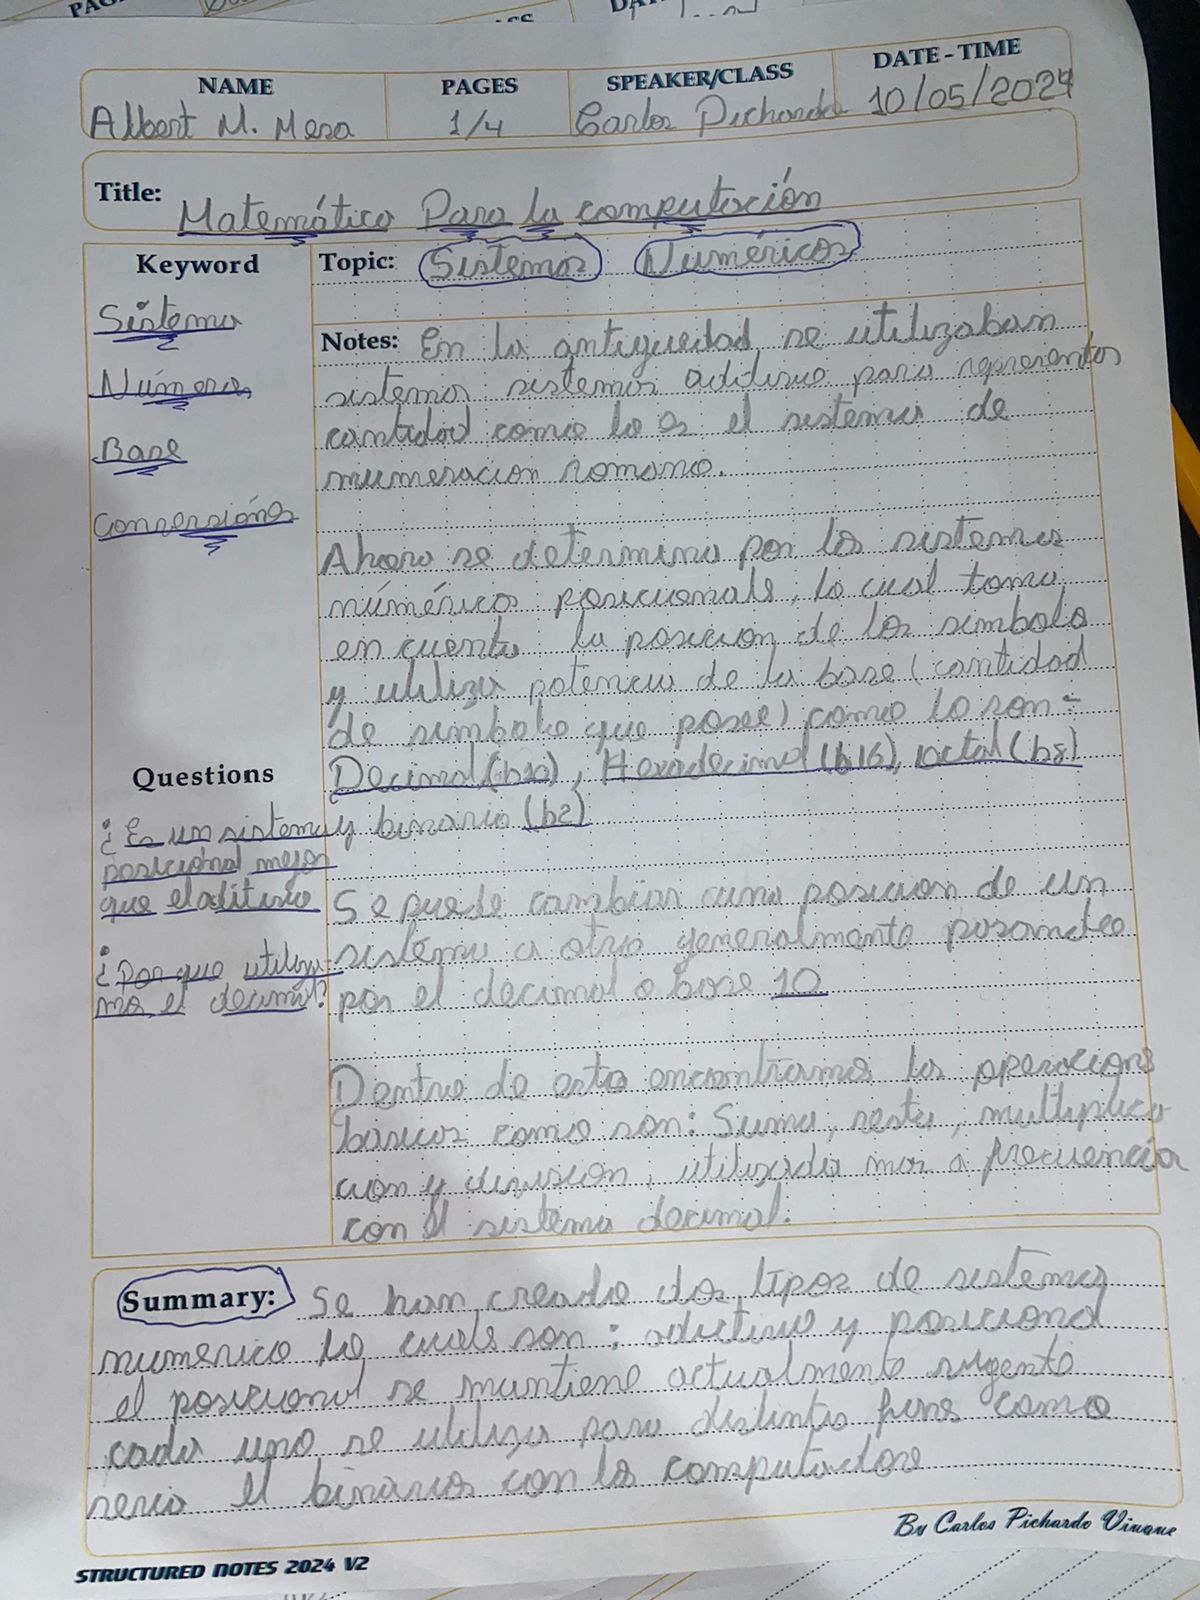 NAME
PAGES
SPEAKER/CLASS
DATE - TIME
Albert M. Mesa
1/4
Carlos Pichardo
10/05/2024
Title: Matemática Para la computación
Keyword
Sistema
Números
Base
Conversiónes
Topic: Sistemas Numéricos
Notes: En la antiguedad se utilizaban
sistemas sistemas aditivo para representar
cantidad como lo es el sistema de
numeracion romano.
Ahora se determina por los sistemas
númérico posicionals, lo cual toma
en cuenta la posicion de los simbolo
y utiliza potencia de la base (cantidad
de simbolo que posee) como lo son:
Decimal (b10), Hexadecimal (b16), octal (b8)
y binario (b2)
Se puede cambiar una posicion de un
sistema a otro generalmente pasando
por el decimal o base 10
Dentro de esto encontramos las operacions
básicas como son: Suma, resta, multiplica
cion y division, utilizada mas a frecuencia
con el sistema decimal.
Questions
¿Es un sistema
posicional mejor
que el aditivo
¿Por que utiliza-
mos el decimal?
Summary: Se han creado dos tipos de sistema
numerico lo cuals son: adictivo y posicional
el posicional se mantiene actualmente vigente
cada uno se utiliza para distintos fines como
seria el binarios con la computadora
By Carlos Pichardo Viuque
STRUCTURED NOTES 2024 V2